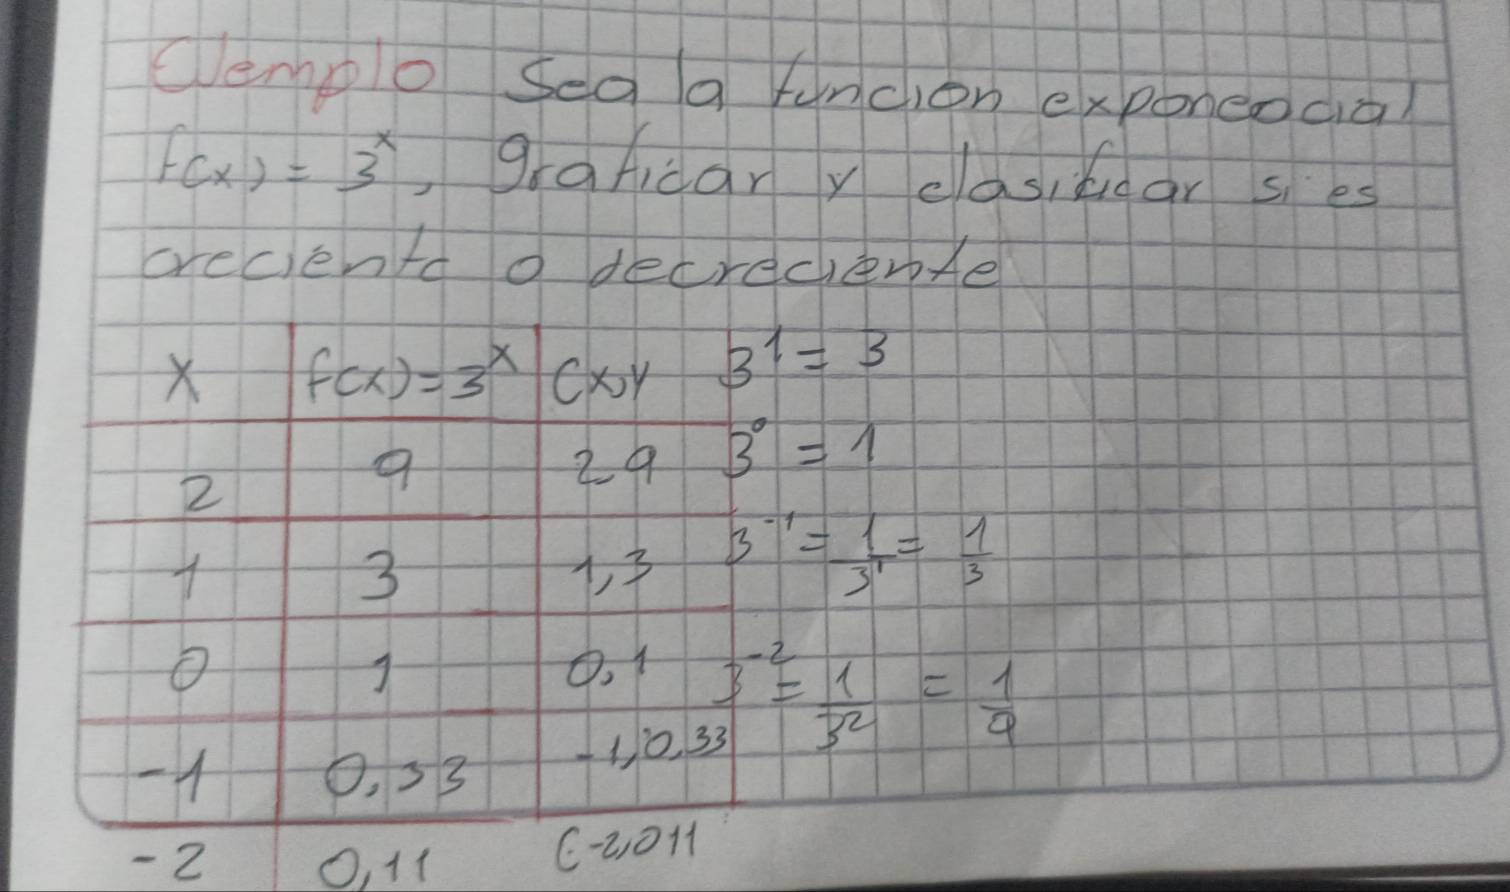 Ejemplo Sea la funcion exponencial
f(x) = 3^x, graficar y clasificar si es
creciente o decreciente
x f(x)=3^x (x,y 3^1 = 3
2 9 2,9 3^0 = 1
1 3 1,3 3^-1 = 1/3^1 = 1/3
0 1 0,1 3^-2 = 1/3^2 = 1/9
-1 0,33 -1,0,33
-2 0,11 (-2,011